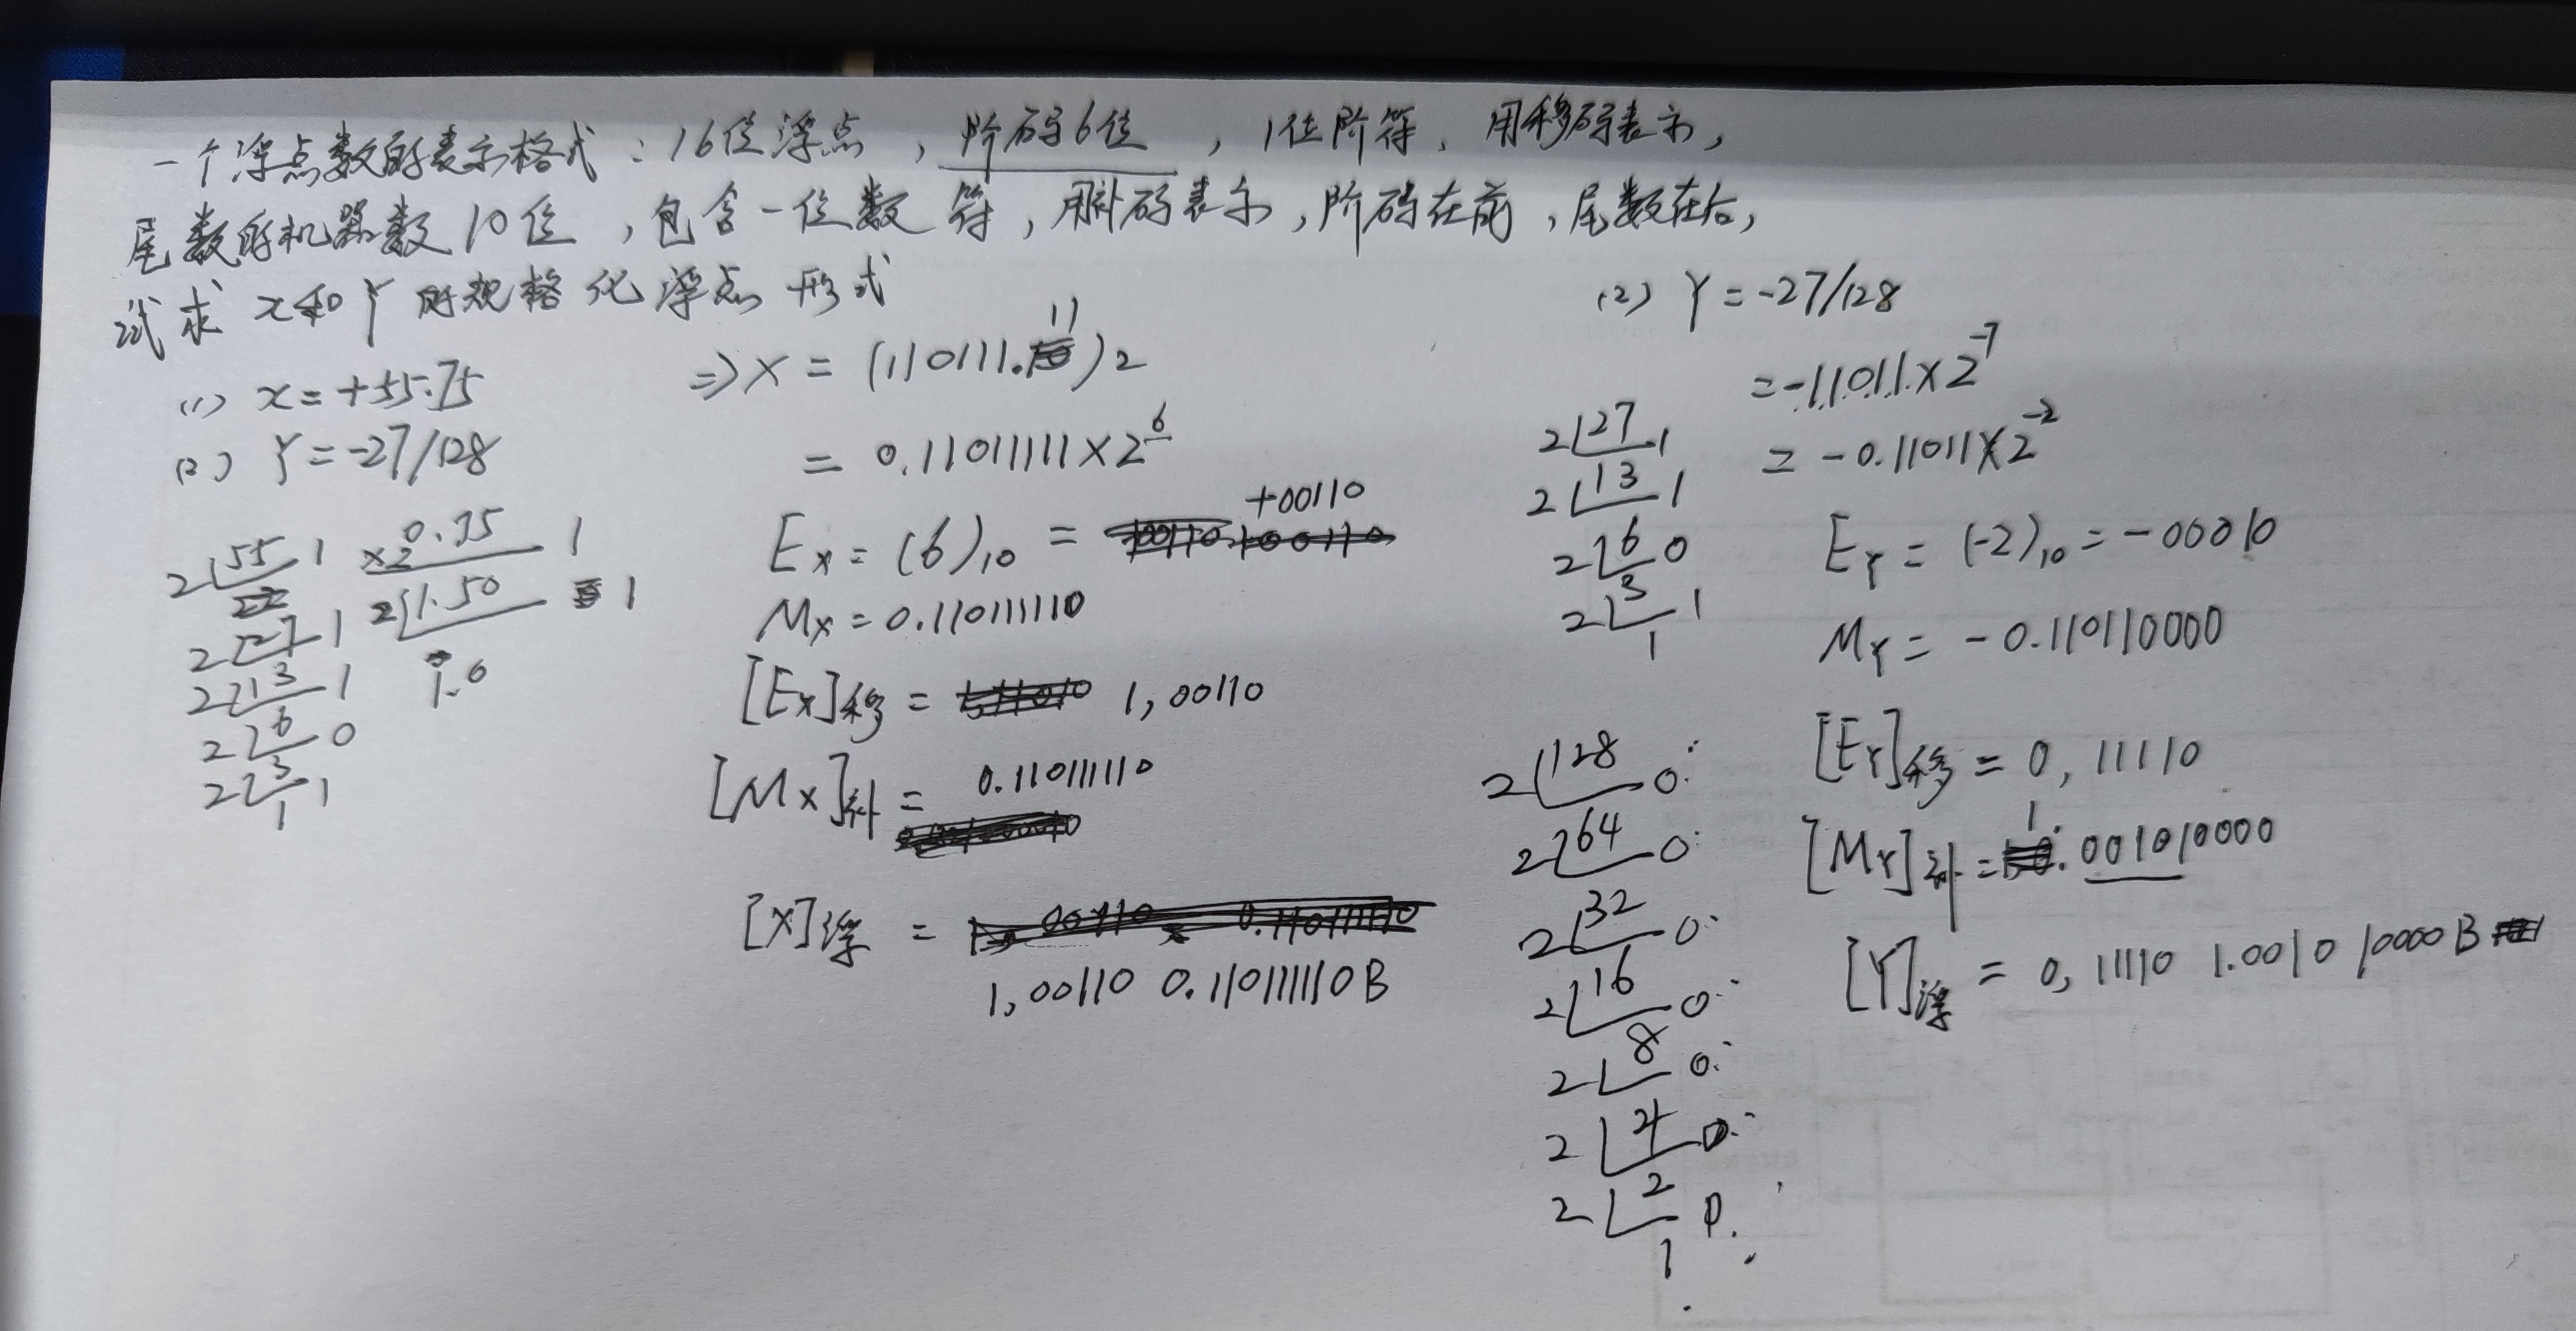 一个浮点数的表示格式：16位浮点，阶码6位，1位阶符，用移码表示，
尾数的机器数10位，包含一位数符，用补码表示，阶码在前，尾数在后，
试求 x和Y的规格化浮点形式
(1) x=+55.75
(2) Y=-27/128
2 55 1
2 27 1
2 13 1
2 6 0
2 3 1
1
0.75
×2 1
1.50
2 1
1.0
⇒X=(110111.11)2
=0.11011111×2^6
Ex=(6)10=+00110
Mx=0.110111110
[Ex]移=1,00110
[Mx]补=0.110111110
[X]浮=
1,00110 0.110111110B
(2) Y=-27/128
=-11011.×2^-7
=-0.11011×2^-2
2 27 1
2 13 1
2 6 0
2 3 1
1
EY=(-2)10=-00010
MY=-0.110110000
[EY]移=0,11110
[MY]补=1.001010000
[Y]浮=0,11110 1.001010000B
2 128 0
2 64 0
2 32 0
2 16 0
2 8 0
2 4 0
2 2 0
1